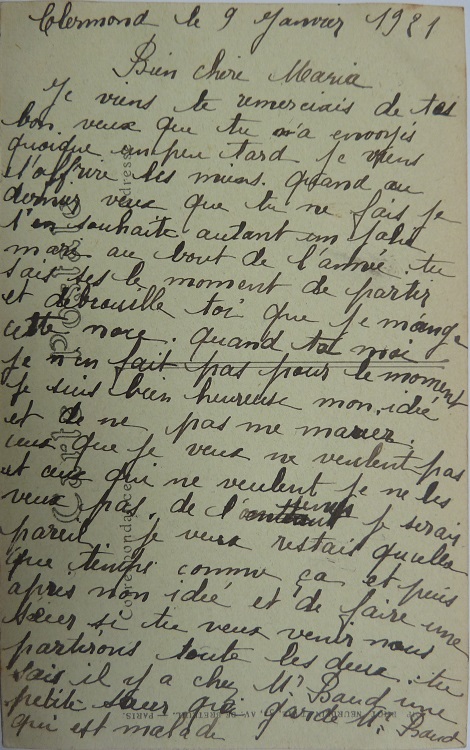 Clermond le 9 Janvier 1921
Bien chère Maria
Je viens te remerciais de tes
bon veux que tu m'a envoyés
quoique un peu tard je viens
t'offrire les miens. quand au
dernier veux que tu me fais je
t'en souhaite autant un joli
mari au bout de l'année tu
sais ses le moment de partir
et débrouille toi que je mange
cette noce. quand ta moi
je n'en fait pas pour le moment
je suis bien heureuse mon idié
et de ne pas me marier.
ceux que je veux ne veulent pas
et ceux qui ne veulent je ne les
veux pas. de l' je serais
pareil je veux restais quelle
que temps comme ça et puis
apres mon idié et de faire une
sœur si tu veux venir nous
partirons toute les deux. tu
sais il y a chez Mr Baud une
petite sœur qui garde Mr Baud
qui est malade
Correspondance
Adresse